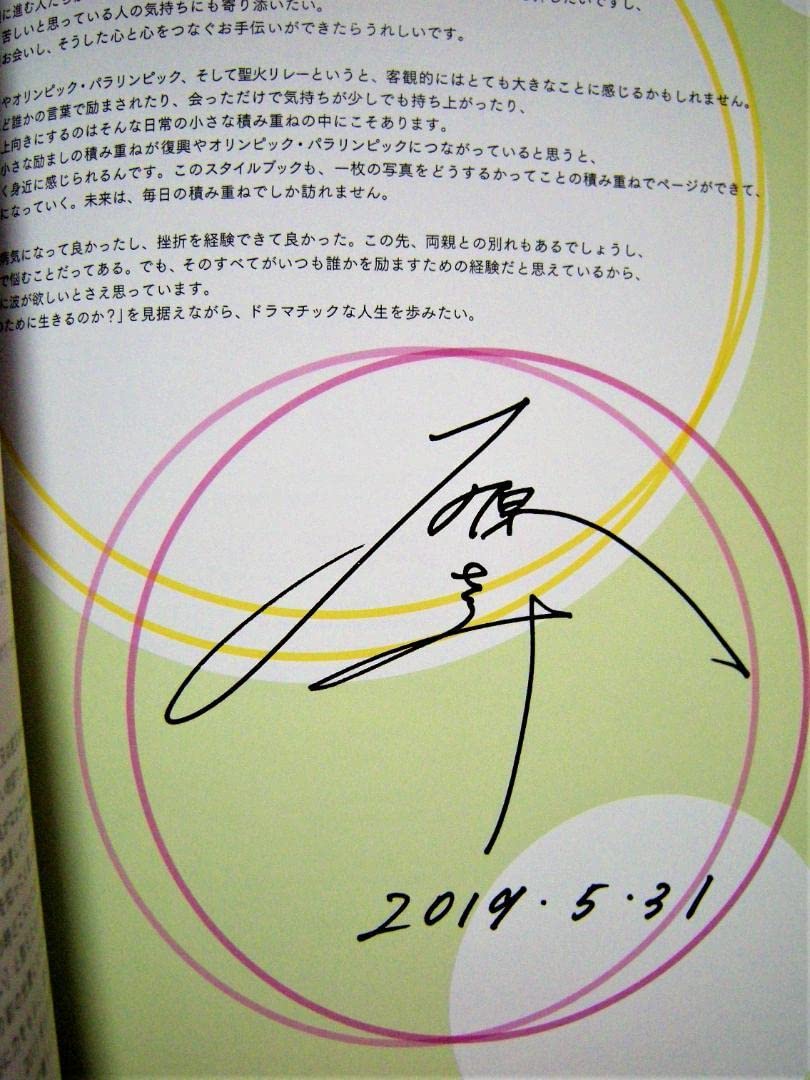 苦しいと思っている人の気持ちにも寄り添いたい。
お会いし、そうした心と心をつなぐお手伝いができたらうれしいです。
やオリンピック・パラリンピック、そして聖火リレーというと、客観的にはとても大きなことに感じるかもしれません。
ど誰かの言葉で励まされたり、会っただけで気持ちが少しでも持ち上がったり、
上向きにするのはそんな日常の小さな積み重ねの中にこそあります。
小さな励ましの積み重ねが復興やオリンピック・パラリンピックにつながっていると思うと、
く身近に感じられるんです。このスタイルブックも、一枚の写真をどうするかってことの積み重ねでページができて、
になっていく。未来は、毎日の積み重ねでしか訪れません。
病気になって良かったし、挫折を経験できて良かった。この先、両親との別れもあるでしょうし、
で悩むことだってある。でも、そのすべてがいつも誰かを励ますための経験だと思えているから、
に波が欲しいとさえ思っています。
のために生きるのか?」を見据えながら、ドラマチックな人生を歩みたい。
原
2019.5.31